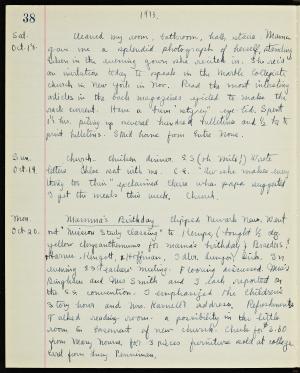 38
1913.
Sat. Cleared my room, bathroom, hall, stairs. Mamma
Oct. 18. gave me a splendid photograph of herself, standing
taken in the evening gown she rented in. She rec'd
an invitation today to speak in the Marble Collegiate
church in New York in Nov. Read the most interesting
articles in the back magazines
rack current. Have a "stye" eye lid. Spent
1½ hrs. piling up several hundred bulletins and ½ hr. to
print bulletins. Staid home from Entre Nous.
Sun. Church. Chicken dinner. S.S. (oh while!) Wrote
Oct. 19. letters. Chloe sat with me. C.E. "She makes every
thing too thin" exclaimed Clara when papa suggested
I get the meals this week. Church.
Mon. Mamma's Birthday. Clipped Newark News. Went
Oct. 20. out "Mission Study Class" to (bought ½ doz.
yellow chrysanthemums for mama's birthday)
Hoffman, sick. In
evening S.S. Teachers' meeting. Flooring discussed. Mrs.
Bingham and Mrs Smith and I each reported on
the S.S. convention. I emphasized the Children's
story hour and Mrs. Lamell's address. Refreshments
I talked reading-room - a possibility in the little
room in basement of new church. Check for $2.60
from Mary Nouns, for 3 pieces furniture sold at college.
Card from Lucy Penniman.